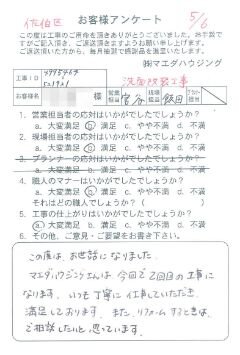 佐伯区 お客様アンケート 5/6
この度は工事のご用命を頂きありがとうございました。お手数で
すがご記入頂き、ご返送頂きますようお願い申し上げます。
ご返送頂いた方から、毎月抽選で感謝品を進呈いたします。
㈱マエダハウジング
工事ID 洗面改装工事
お客様名 様 営業担当 現場担当 飯田
1. 営業担当者の応対はいかがでしたでしょうか?
a. 大変満足 b. 満足 c. やや不満 d. 不満
2. 現場担当者の応対はいかがでしたでしょうか?
a. 大変満足 b. 満足 c. やや不満 d. 不満
3. プランナーの応対はいかがでしたでしょうか?
a. 大変満足 b. 満足 c. やや不満 d. 不満
4. 職人のマナーはいかがでしたでしょうか?
a. 大変満足 b. 満足 c. やや不満 d. 不満
それはどの職人でしょうか?( )
5. 工事の仕上がりはいかがでしたでしょうか?
a. 大変満足 b. 満足 c. やや不満 d. 不満
6. その他、ご意見・ご要望をお書き下さい。
この度は、お世話になりました。
マエダハウジングさんは今回で2回目の工事に
なります。いつも丁寧に仕事していただき、
満足しております。また、リフォームするときは、
ご相談したいと思っています。